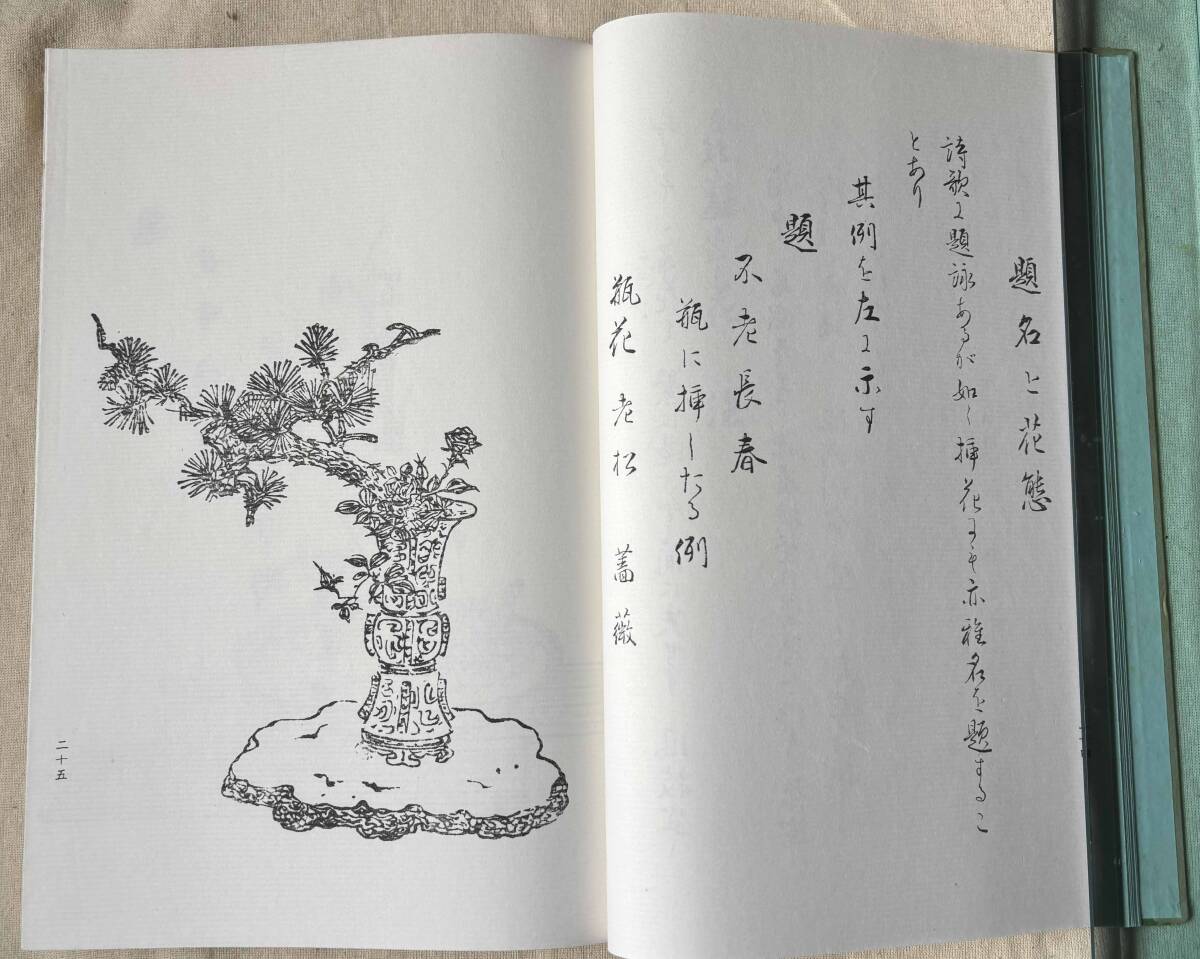 題名と花態
詩歌に題詠あるが如く挿花にも亦雅名を題するこ
とあり
其例を左に示す
題
不老長春
瓶に挿したる例
瓶花 老松 薔薇
二十五